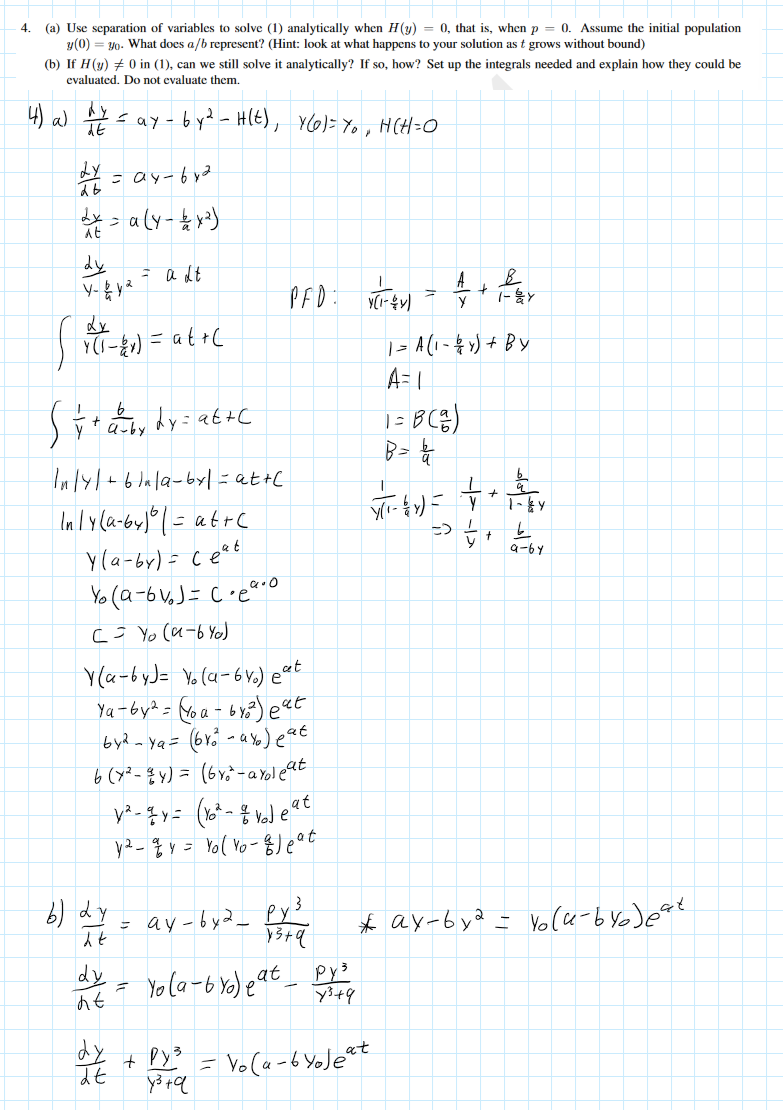 4. (a) Use separation of variables to solve (1) analytically when H(y) = 0, that is, when p = 0. Assume the initial population
y(0) = y₀. What does a/b represent? (Hint: look at what happens to your solution as t grows without bound)
(b) If H(y) ≠ 0 in (1), can we still solve it analytically? If so, how? Set up the integrals needed and explain how they could be
evaluated. Do not evaluate them.
4) a) dy/dt = ay - by² - H(t), y(0) = y₀, H(t) = 0
dy/dt = ay - by²
dy/dt = a(y - b/a y²)
dy/(y - b/a y²) = a dt
∫ dy/(y(1 - b/a y)) = at + C
∫ 1/y + b/(a-by) dy = at + C
ln|y| + b ln|a-by| = at + C
ln|y(a-by)^b| = at + C
y(a-by) = Ce^{at}
y₀(a-by₀) = C·e^{a·0}
C = y₀(a-by₀)
y(a-by) = y₀(a-by₀)e^{at}
ya - by² = (y₀a - by₀²)e^{at}
by² - ya = (by₀² - ay₀)e^{at}
b(y² - a/b y) = (by₀² - ay₀)e^{at}
y² - a/b y = (y₀² - a/b y₀)e^{at}
y² - a/b y = y₀(y₀ - a/b)e^{at}
PFD: 1/(y(1 - b/a y)) = A/y + B/(1 - b/a y)
1 = A(1 - b/a y) + By
A = 1
1 = B(a/b)
B = b/a
1/(y(1 - b/a y)) = 1/y + (b/a)/(1 - b/a y)
=> 1/y + b/(a-by)
b) dy/dt = ay - by² - py³/(y³+q) * ay - by² = y₀(a-by₀)e^{at}
dy/dt = y₀(a-by₀)e^{at} - py³/(y³+q)
dy/dt + py³/(y³+q) = y₀(a-by₀)e^{at}